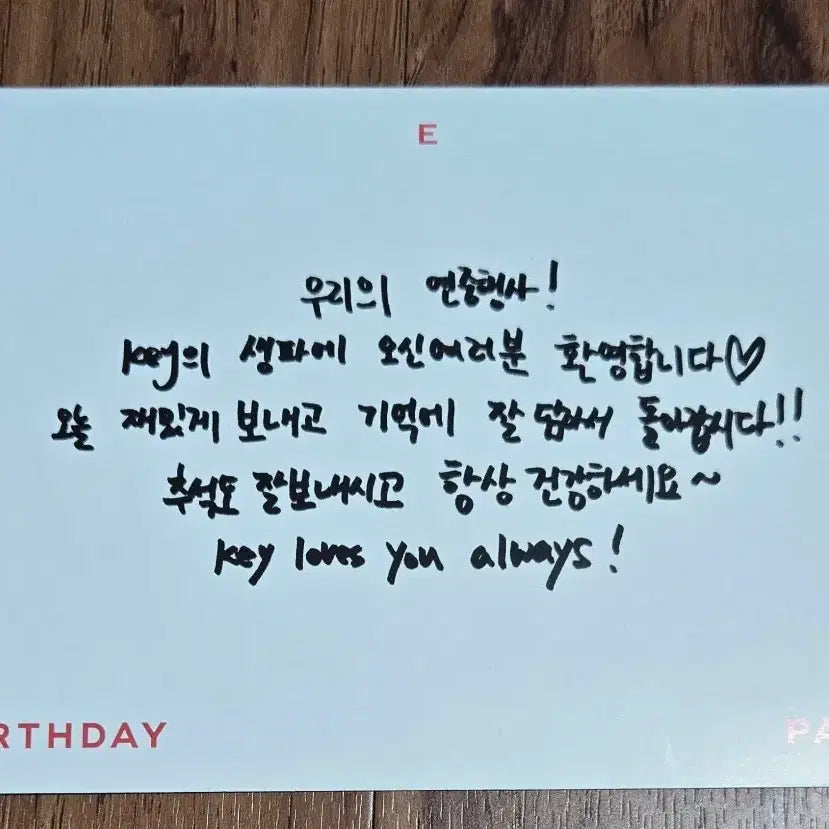 E
우리의 연중행사!
Key의 생파에 오신여러분 환영합니다♡
오늘 재밌게 보내고 기억에 잘 담아서 돌아갑시다!!
추석도 잘보내시고 항상 건강하세요~
Key loves you always!
RTHDAY
PA